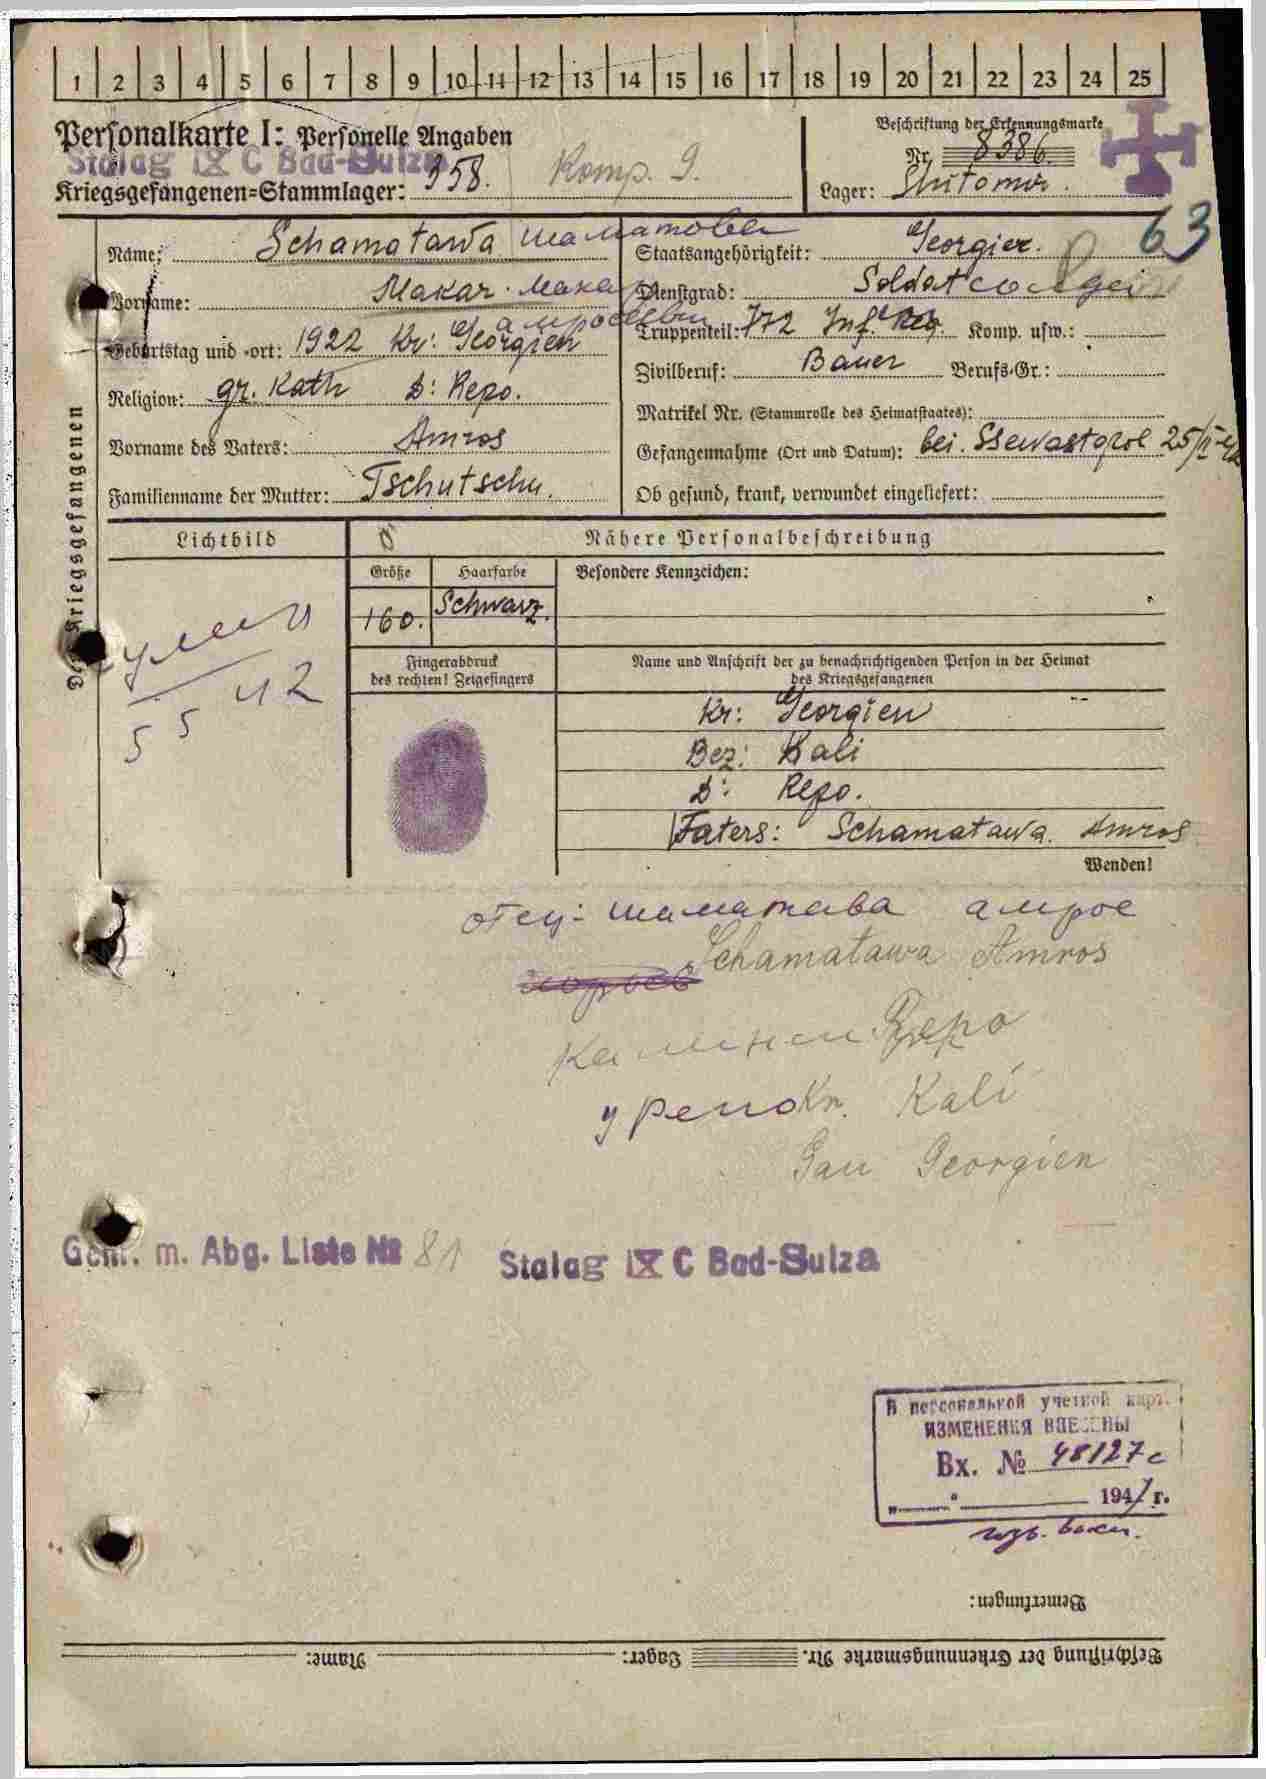 1 2 3 4 5 6 7 8 9 10 11 12 13 14 15 16 17 18 19 20 21 22 23 24 25
Personalkarte I: Personelle Angaben
Stalag IX C Bad-Sulza
Kriegsgefangenen-Stammlager: 358. Komp. 9.
Beschriftung der Erkennungsmarke
Nr. 8386.
Lager: Shitomir.
63
Name: Schamatawa шаматава
Vorname: Макаr. Мака
амросевич
Geburtstag und -ort: 1922 Kr: Georgien
Religion: gr. Kath D: Repo.
Vorname des Vaters: Amros
Familienname der Mutter: Tschutschu.
Staatsangehörigkeit: Georgier.
Dienstgrad: Soldat солдат
Truppenteil: 772 Inf. Reg. Komp. usw.:
Zivilberuf: Bauer Berufs-Gr.:
Matrikel Nr. (Stammrolle des Heimatstaates):
Gefangennahme (Ort und Datum): bei. Ssewastopol 25/
Ob gesund, krank, verwundet eingeliefert:
Des Kriegsgefangenen
Lichtbild
Nähere Personalbeschreibung
Größe Haarfarbe Besondere Kennzeichen:
160. Schwarz.
Fingerabdruck
des rechten! Zeigefingers
Name und Anschrift der zu benachrichtigenden Person in der Heimat
des Kriegsgefangenen
умер
5 5 42
Kr: Georgien
Bez: Kali
D: Repo.
Faters: Schamatawa. Amros
Wenden!
отец: шаматава амрос
Schamatawa Amros
Repo
у репо Kr. Kali
Gau Georgien
Gem. m. Abg. Liste № 81 Stalag IX C Bad-Sulza
В персональной учетной карт.
ИЗМЕНЕНИЯ ВНЕСЕНЫ
Вх. № 48127с
„ “ 1947 г.
Bemerkungen:
Beschriftung der Erkennungsmarke Nr. Lager: Name: